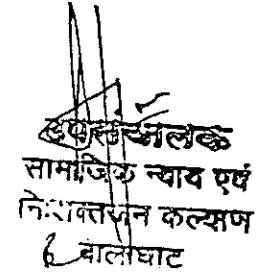 उपसंचालक
सामाजिक न्याय एवं
निःशक्तजन कल्याण
बालाघाट